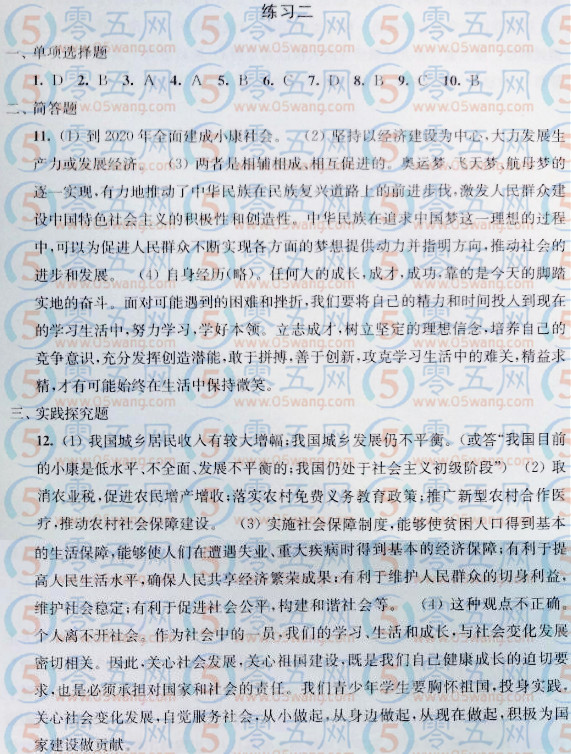 练习二
一、单项选择题
1. D 2. B 3. A 4. A 5. B 6. C 7. D 8. B 9. C 10. B
二、简答题
11. (1) 到 2020 年全面建成小康社会。 (2) 坚持以经济建设为中心,大力发展生
产力或发展经济。 (3) 两者是相辅相成、相互促进的。奥运梦、飞天梦、航母梦的
逐一实现,有力地推动了中华民族在民族复兴道路上的前进步伐,激发人民群众建
设中国特色社会主义的积极性和创造性。中华民族在追求中国梦这一理想的过程
中,可以为促进人民群众不断实现各方面的梦想提供动力并指明方向,推动社会的
进步和发展。 (4) 自身经历(略)。任何人的成长,成才,成功,靠的是今天的脚踏
实地的奋斗。面对可能遇到的困难和挫折,我们要将自己的精力和时间投入到现在
的学习生活中,努力学习,学好本领。立志成才,树立坚定的理想信念,培养自己的
竞争意识,充分发挥创造潜能,敢于拼搏,善于创新,攻克学习生活中的难关,精益求
精,才有可能始终在生活中保持微笑。
三、实践探究题
12. (1) 我国城乡居民收入有较大增幅;我国城乡发展仍不平衡。(或答“我国目前
的小康是低水平、不全面、发展不平衡的;我国仍处于社会主义初级阶段”) (2) 取
消农业税,促进农民增产增收;落实农村免费义务教育政策;推广新型农村合作医
疗,推动农村社会保障建设。 (3) 实施社会保障制度,能够使贫困人口得到基本
的生活保障,能够使人们在遭遇失业、重大疾病时得到基本的经济保障;有利于提
高人民生活水平,确保人民共享经济繁荣成果;有利于维护人民群众的切身利益,
维护社会稳定;有利于促进社会公平,构建和谐社会等。 (4) 这种观点不正确。
个人离不开社会。作为社会中的一员,我们的学习、生活和成长,与社会变化发展
密切相关。因此,关心社会发展,关心祖国建设,既是我们自己健康成长的迫切要
求,也是必须承担对国家和社会的责任。我们青少年学生要胸怀祖国,投身实践,
关心社会变化发展,自觉服务社会,从小做起,从身边做起,从现在做起,积极为国
家建设做贡献。